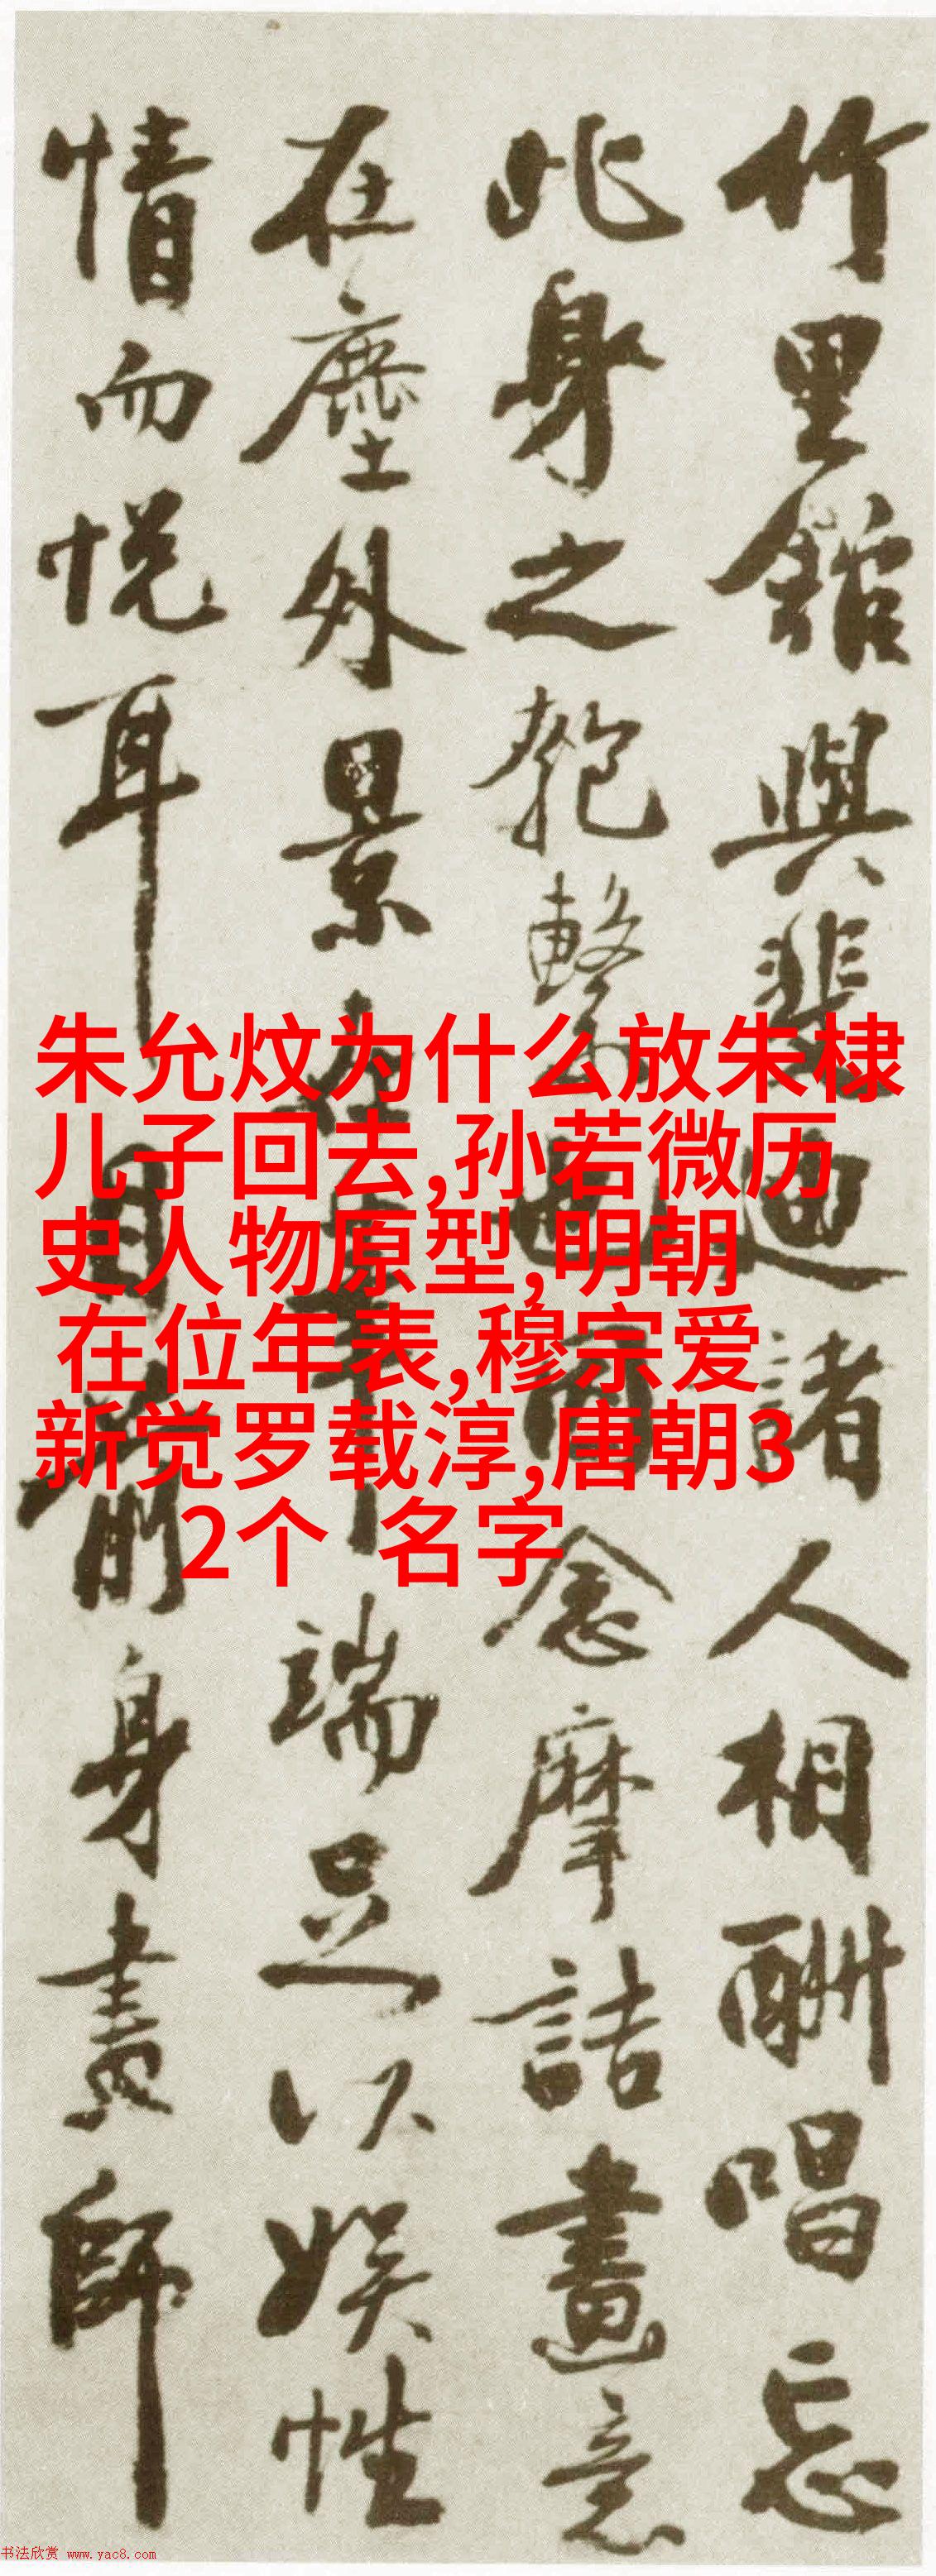 竹里館與裴迪諸人相酬唱忘
此身之匏繫因而念摩詰畫意
在塵外景在筆端足以娛性
情而悅耳目前身畫師
朱允炆为什么放朱棣
儿子回去,孙若微历
史人物原型,明朝
在位年表,穆宗爱
新觉罗载淳,唐朝3
2个 名字
书法欣赏 www.yac8.com